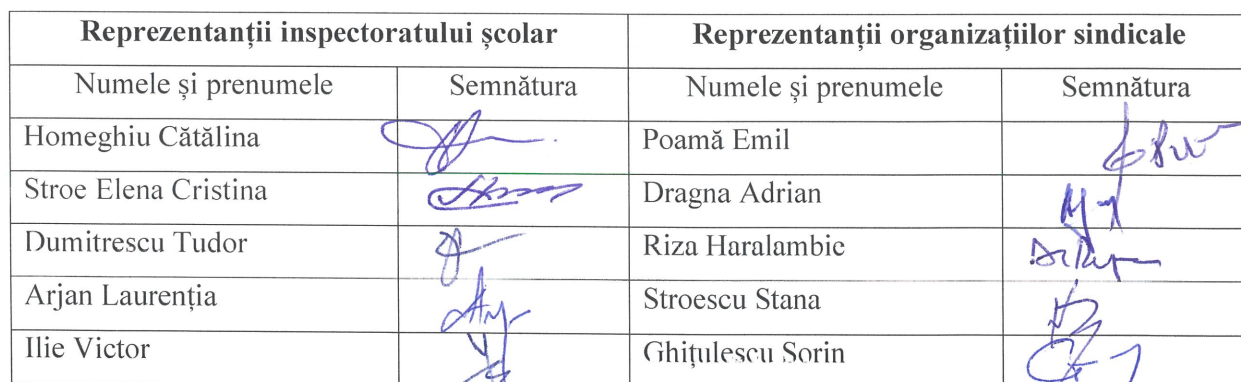 Reprezentanții inspectoratului școlar Reprezentanții organizațiilor sindicale
Numele și prenumele Semnătura Numele și prenumele Semnătura
Homeghiu Cătălina Poamă Emil
Stroe Elena Cristina Dragna Adrian
Dumitrescu Tudor Riza Haralambie
Arjan Laurenția Stroescu Stana
Ilie Victor Ghițulescu Sorin